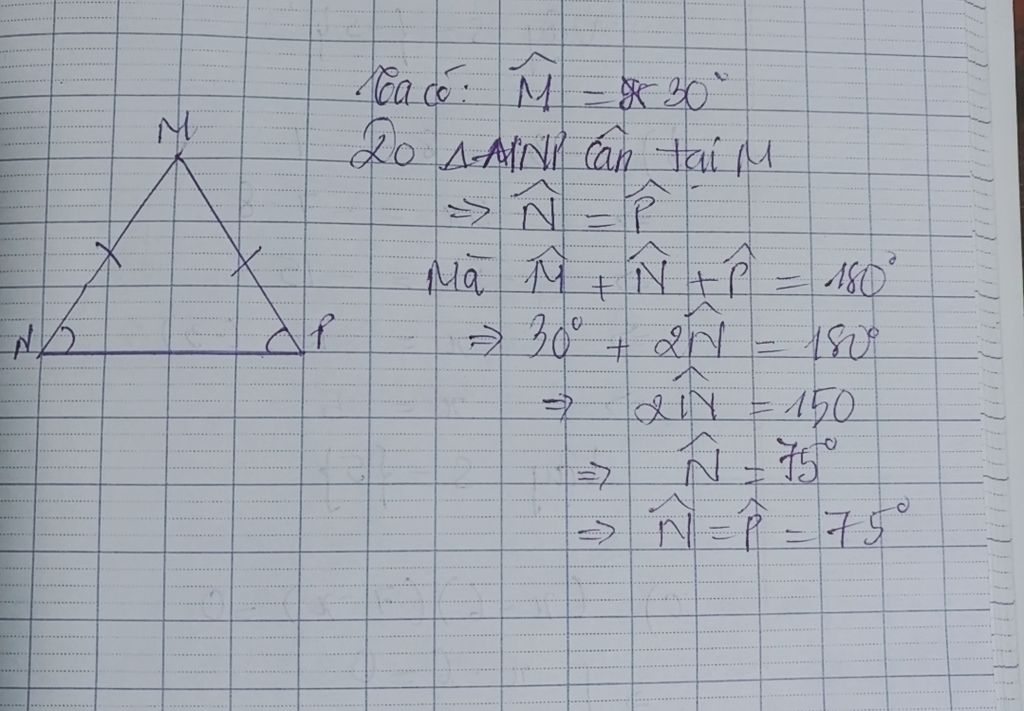 M
N
P
Ta có: M̂ = 30°
Do ΔMNP cân tại M
=> N̂ = P̂
Mà M̂ + N̂ + P̂ = 180°
=> 30° + 2N̂ = 180°
=> 2N̂ = 150
=> N̂ = 75°
=> N̂ = P̂ = 75°